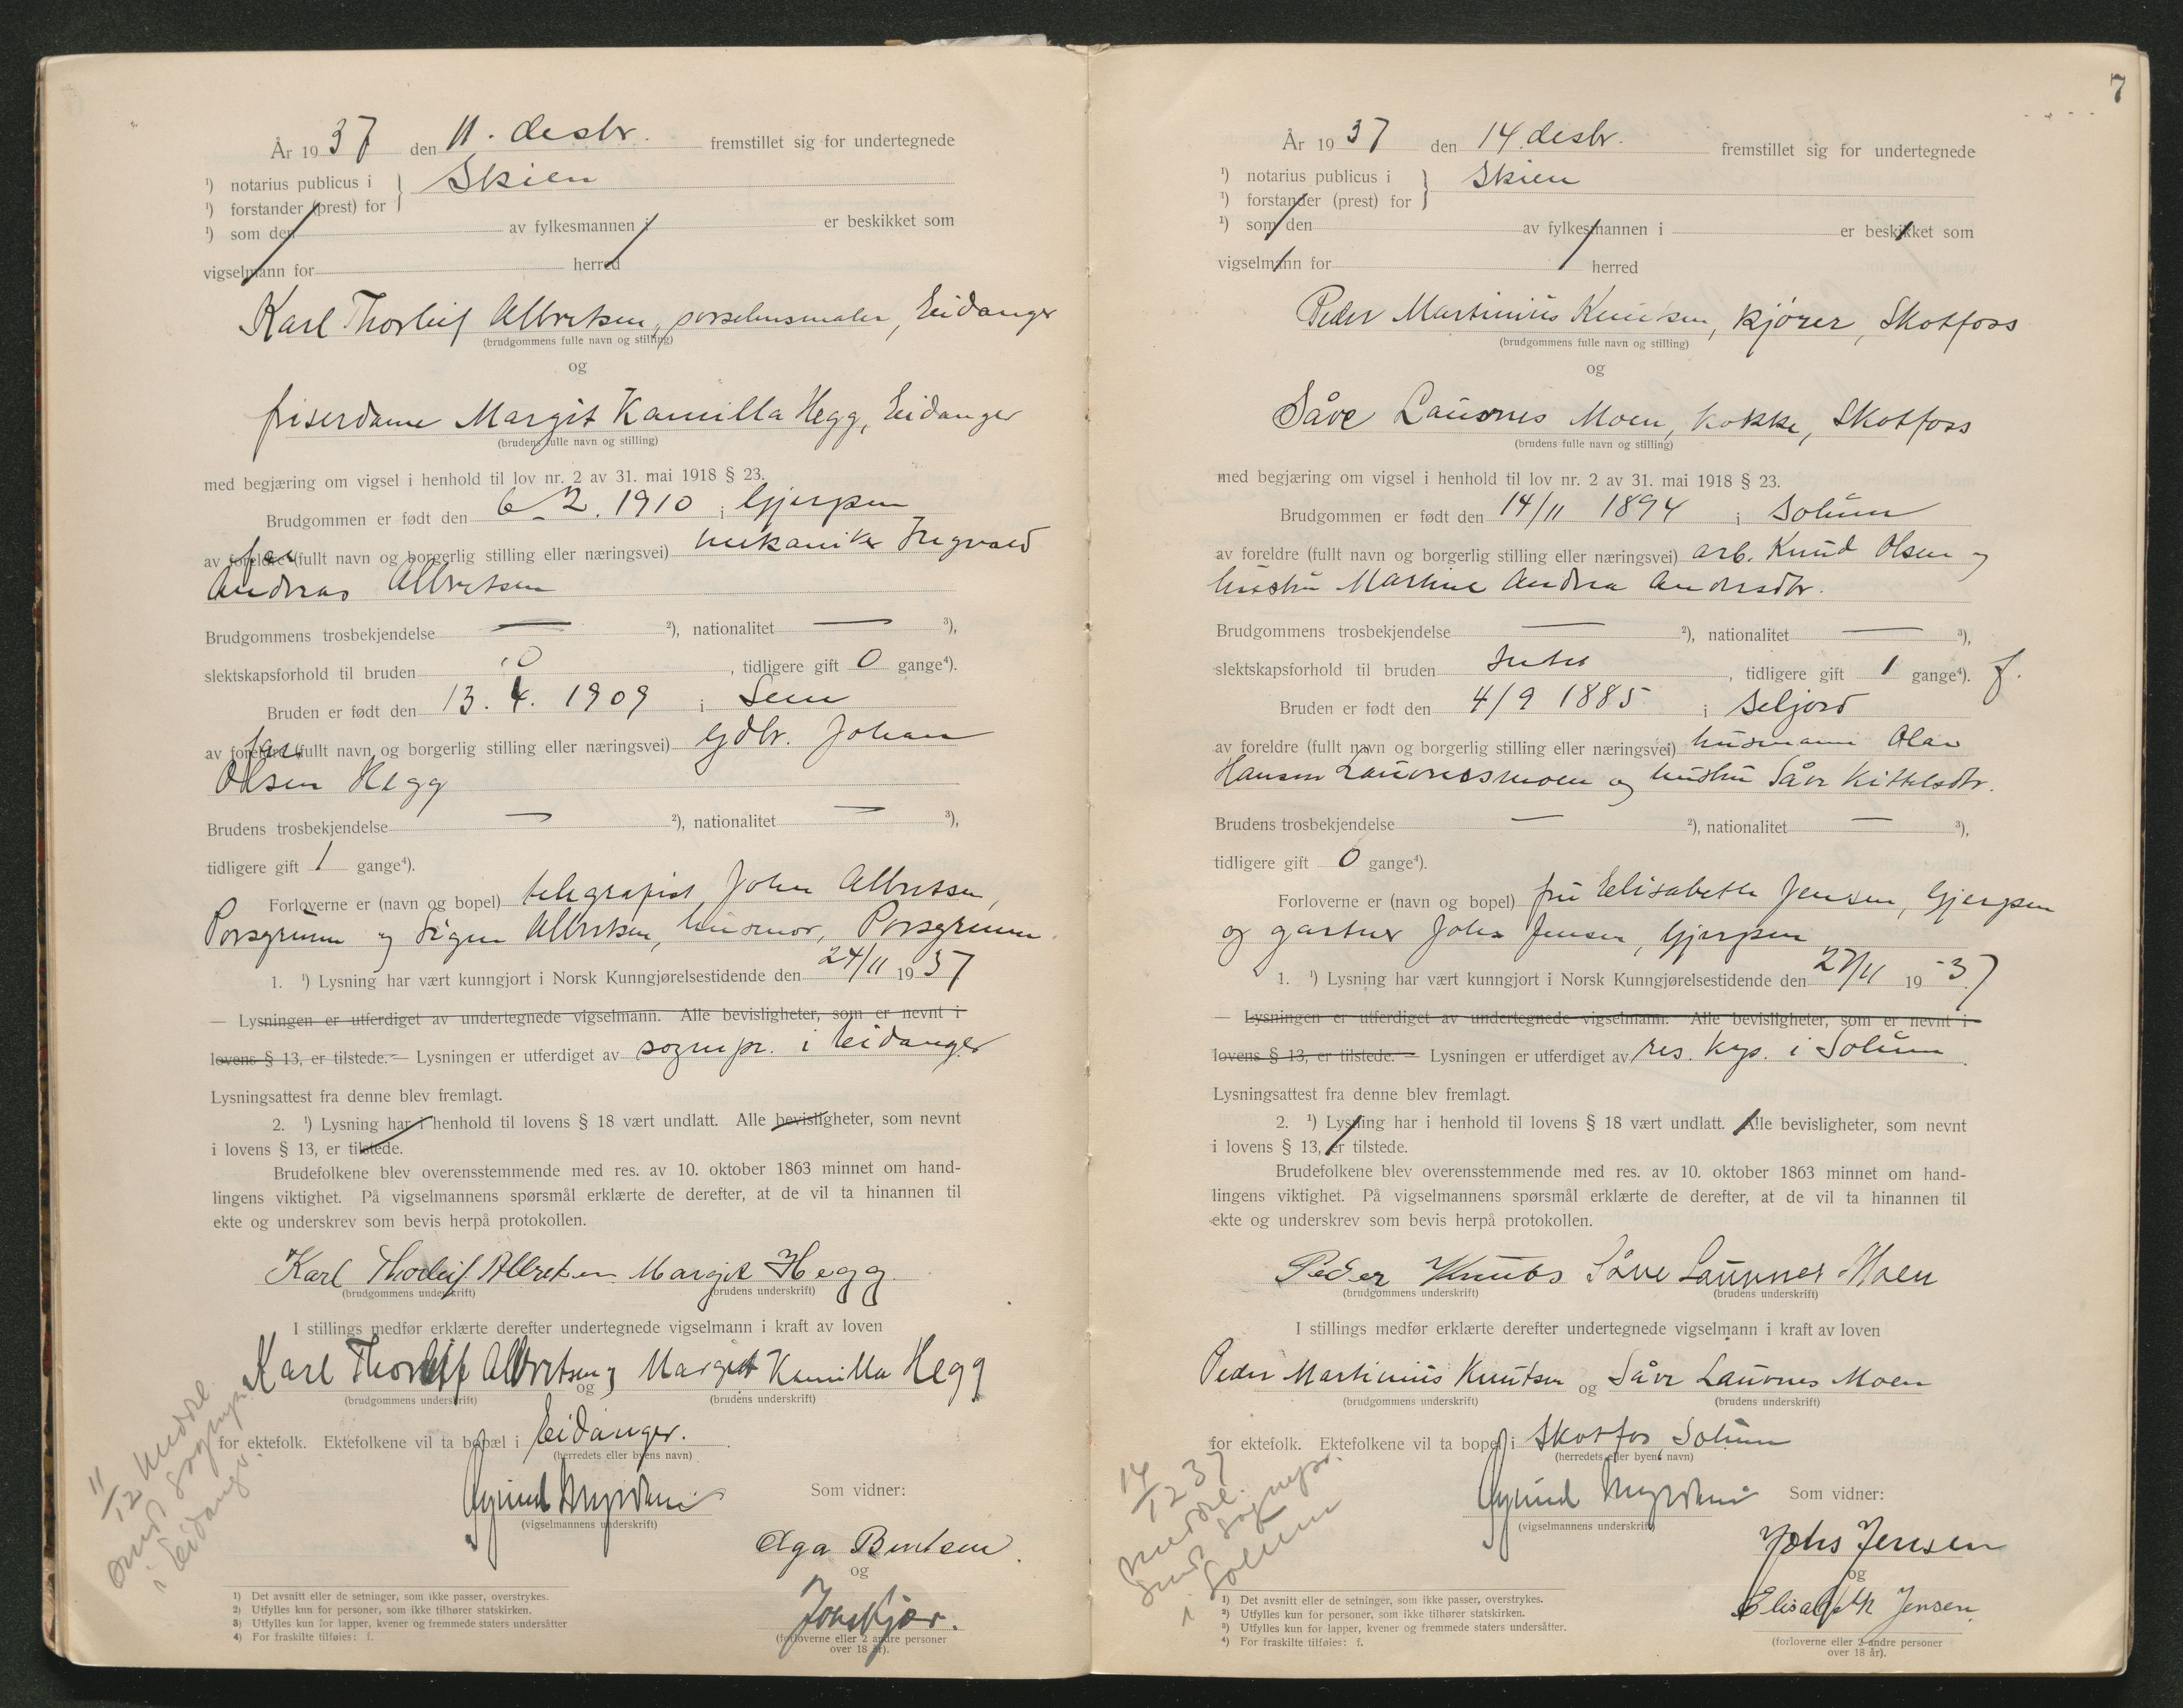 År 1937 den 11. desbr. fremstillet sig for undertegnede
¹) notarius publicus i } Skien
¹) forstander (prest) for
¹) som den av fylkesmannen i er beskikket som
vigselmann for herred
Karl Thorleif Albretsen, porselensmaler, Eidanger
(brudgommens fulle navn og stilling)
og
friserdame Margit Kamilla Hegg, Eidanger
(brudens fulle navn og stilling)
med begjæring om vigsel i henhold til lov nr. 2 av 31. mai 1918 § 23.
Brudgommen er født den 6. 2. 1910 i Gjerpen
far
av foreldre (fullt navn og borgerlig stilling eller næringsvei) mekaniker Ingvald
Andreas Albretsen
Brudgommens trosbekjendelse — ²), nationalitet — ³),
slektskapsforhold til bruden 0, tidligere gift 0 gange⁴).
Bruden er født den 13. 4. 1909 i Sem
far
av foreldre (fullt navn og borgerlig stilling eller næringsvei) Gdbr. Johan
Olsen Hegg
Brudens trosbekjendelse — ²), nationalitet — ³),
tidligere gift 1 gange⁴).
Forloverne er (navn og bopel) telegrafist John Albretsen,
Porsgrunn og Signe Albretsen, husmor, Porsgrunn.
1. ¹) Lysning har vært kunngjort i Norsk Kunngjørelsestidende den 24/11 1937
— Lysningen er utferdiget av undertegnede vigselmann. Alle bevisligheter, som er nevnt i
lovens § 13, er tilstede. — Lysningen er utferdiget av sognepr. i Eidanger
Lysningsattest fra denne blev fremlagt.
2. ¹) Lysning har i henhold til lovens § 18 vært undlatt. Alle bevisligheter, som nevnt
i lovens § 13, er tilstede.
Brudefolkene blev overensstemmende med res. av 10. oktober 1863 minnet om hand-
lingens viktighet. På vigselmannens spørsmål erklærte de derefter, at de vil ta hinannen til
ekte og underskrev som bevis herpå protokollen.
Karl Thorleif Albretsen Margit Hegg
(brudgommens underskrift) (brudens underskrift)
I stillings medfør erklærte derefter undertegnede vigselmann i kraft av loven
Karl Thorleif Albretsen og Margit Kamilla Hegg
(brudgommens underskrift) (brudens underskrift)
for ektefolk. Ektefolkene vil ta bopæl i Eidanger.
(herredets eller byens navn)
11/12 meddel
sognepr.
i Eidanger.
Som vidner:
(vigselmannens underskrift)
Aga Bentsen.
og
(forloverne eller 2 andre personer
over 18 år).
1) Det avsnitt eller de setninger, som ikke passer, overstrykes.
2) Utfylles kun for personer, som ikke tilhører statskirken.
3) Utfylles kun for lapper, kvener og fremmede staters undersåtter
4) For fraskilte tilføies: f.
7
År 1937 den 14. desbr. fremstillet sig for undertegnede
¹) notarius publicus i } Skien
¹) forstander (prest) for
¹) som den av fylkesmannen i er beskikket som
vigselmann for herred
Peder Martinius Knutsen, kjører, Skotfoss
(brudgommens fulle navn og stilling)
og
Såve Lauvnes Moen, kokke, Skotfoss
(brudens fulle navn og stilling)
med begjæring om vigsel i henhold til lov nr. 2 av 31. mai 1918 § 23.
Brudgommen er født den 14/11 1894 i Solum
av foreldre (fullt navn og borgerlig stilling eller næringsvei) arb. Knud Olsen og
hustru Martine Andrea Andersdtr.
Brudgommens trosbekjendelse — ²), nationalitet — ³),
slektskapsforhold til bruden intet, tidligere gift 1 gange⁴). f.
Bruden er født den 4/9 1885 i Seljord
av foreldre (fullt navn og borgerlig stilling eller næringsvei) husmann Olav
Hansen Lauvnesmoen og hustru Såve Kittelsdtr.
Brudens trosbekjendelse — ²), nationalitet — ³),
tidligere gift 0 gange⁴).
Forloverne er (navn og bopel) fru Elisabeth Jensen, Gjerpen
og gartner Johs Jensen, Gjerpen
1. ¹) Lysning har vært kunngjort i Norsk Kunngjørelsestidende den 27/11 1937
— Lysningen er utferdiget av undertegnede vigselmann. Alle bevisligheter, som er nevnt i
lovens § 13, er tilstede. — Lysningen er utferdiget av res. kap. i Solum.
Lysningsattest fra denne blev fremlagt.
2. ¹) Lysning har i henhold til lovens § 18 vært undlatt. Alle bevisligheter, som nevnt
i lovens § 13, er tilstede.
Brudefolkene blev overensstemmende med res. av 10. oktober 1863 minnet om hand-
lingens viktighet. På vigselmannens spørsmål erklærte de derefter, at de vil ta hinannen til
ekte og underskrev som bevis herpå protokollen.
Peder Knuts Såve Lauvnes Moen
(brudgommens underskrift) (brudens underskrift)
I stillings medfør erklærte derefter undertegnede vigselmann i kraft av loven
Peder Martinius Knutsen og Såve Lauvnes Moen
(brudgommens underskrift) (brudens underskrift)
for ektefolk. Ektefolkene vil ta bopel i Skotfos, Solum
(herredets eller byens navn)
14/12 37
meddel.
sognepr.
i Solum
Som vidner:
(vigselmannens underskrift)
Johs Jensen
og
Elisabeth Jensen.
(forloverne eller 2 andre personer
over 18 år).
1) Det avsnitt eller de setninger, som ikke passer, overstrykes.
2) Utfylles kun for personer, som ikke tilhører statskirken.
3) Utfylles kun for lapper, kvener og fremmede staters undersåtter.
4) For fraskilte tilføies: f.